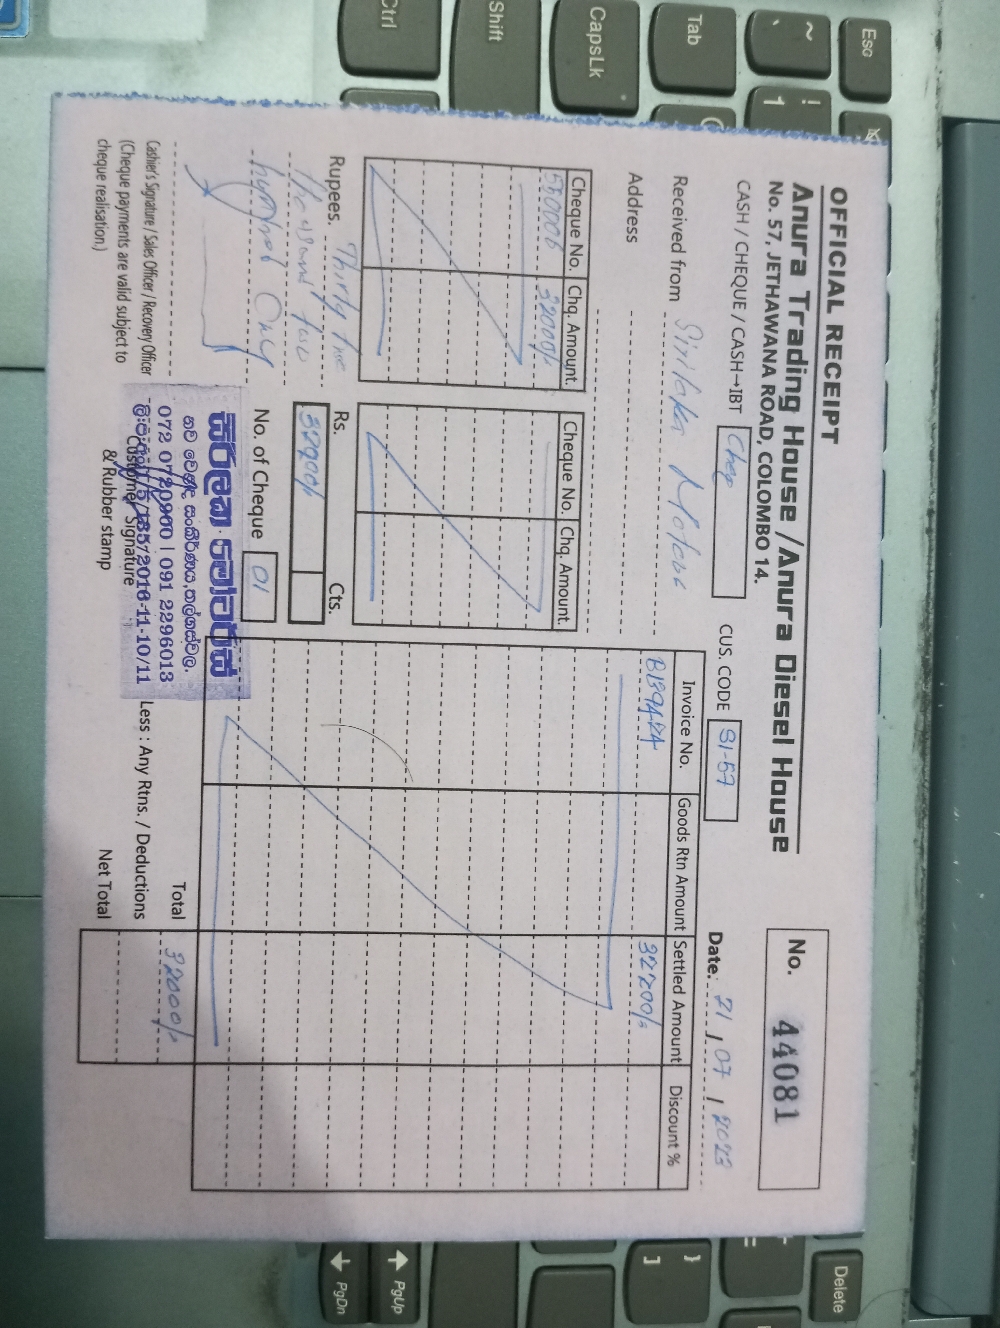 OFFICIAL RECEIPT
Anura Trading House / Anura Diesel House
No. 57, JETHAWANA ROAD, COLOMBO 14.
No. 44081
CASH / CHEQUE / CASH→IBT Cheq
CUS. CODE S1-57
Date: 21 / 07 / 2023
Received from Sirilaka Motors
Address
Cheque No. Chq. Amount.
550006 32200/-
Cheque No. Chq. Amount.
Invoice No. Goods Rtn Amount Settled Amount Discount %
B139424 32200/-
Rupees. Thirty two
thousand two
hundred Only
Rs. Cts.
32200/-
No. of Cheque 01
Cashier's Signature / Sales Officer / Recovery Officer
(Cheque payments are valid subject to
cheque realisation.)
072 0720900 | 091 2296013
/2016-11-10/11
Customer Signature
& Rubber stamp
Total 32000/-
Less : Any Rtns. / Deductions
Net Total
Esc
~
`
!
1
Tab
CapsLk
Shift
Ctrl
Delete
}
]
PgUp
PgDn